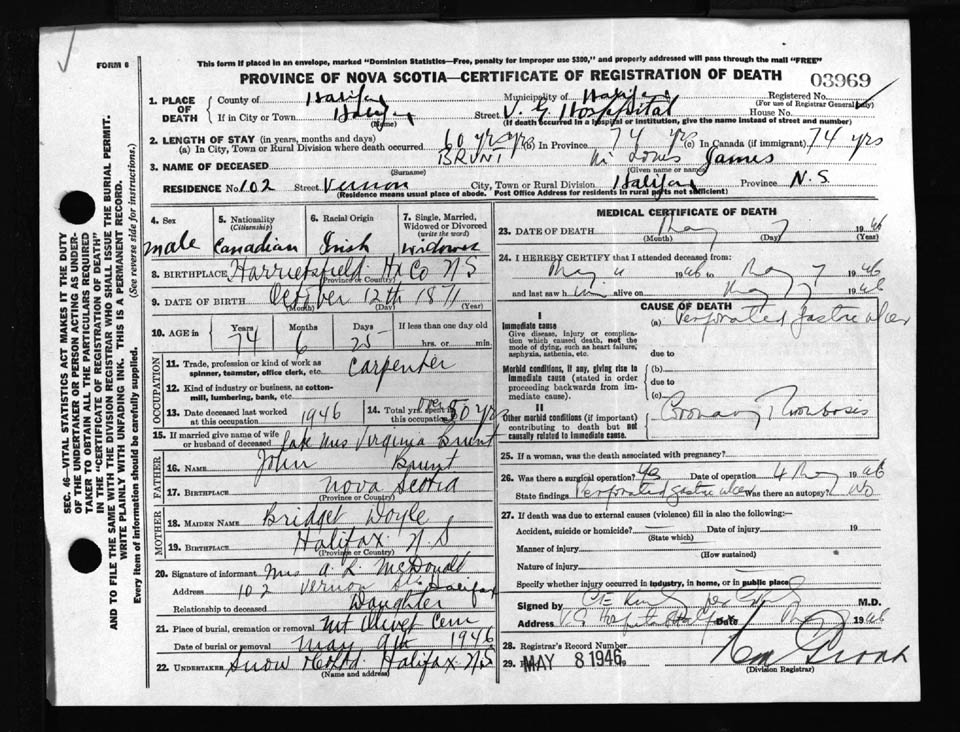 FORM 6
This form if placed in an envelope, marked "Dominion Statistics—Free, penalty for improper use $300," and properly addressed will pass through the mail "FREE"
PROVINCE OF NOVA SCOTIA—CERTIFICATE OF REGISTRATION OF DEATH
03969
1. PLACE OF DEATH County of Halifax Municipality of Halifax Registered No. (For use of Registrar General only)
If in City or Town Halifax (Name) Street V. G. Hospital House No.
(If death occurred in a hospital or institution, give the name instead of street and number)
2. LENGTH OF STAY (in years, months and days)
(a) In City, Town or Rural Division where death occurred 60 yrs (b) In Province 74 yrs (c) In Canada (if immigrant) 74 yrs
3. NAME OF DECEASED BRUNT (Surname) Louis James (Given name or names)
RESIDENCE No. 102 Street Vernon City, Town or Rural Division Halifax Province N.S
(Residence means usual place of abode. Post Office Address for residents in rural parts not sufficient)
4. Sex male
5. Nationality (Citizenship) Canadian
6. Racial Origin Irish
7. Single, Married, Widowed or Divorced (write the word) widower
8. BIRTHPLACE Harrietsfield Hx Co NS
(Province or Country)
9. DATE OF BIRTH October 12th 1871
(Month) (Day) (Year)
10. AGE in Years 74 Months 6 Days 25 If less than one day old hrs. or min.
OCCUPATION
11. Trade, profession or kind of work as spinner, teamster, office clerk, etc. Carpenter
12. Kind of industry or business, as cotton-mill, lumbering, bank, etc.
13. Date deceased last worked at this occupation 1946
14. Total yrs. spent in this occupation over 50 yrs
15. If married give name of wife or husband of deceased late Mrs Virginia Brunt
FATHER
16. NAME John Brunt
17. BIRTHPLACE Nova Scotia
(Province or Country)
MOTHER
18. MAIDEN NAME Bridget Doyle
19. BIRTHPLACE Halifax N.S
(Province or Country)
20. Signature of informant Mrs A. L. McDonald
Address 102 Vernon St Halifax
Relationship to deceased Daughter
21. Place of burial, cremation or removal Mt Olivet Cem
Date of burial or removal May 9th 1946
22. UNDERTAKER Snow Halifax NS
(Name and address)
MEDICAL CERTIFICATE OF DEATH
23. DATE OF DEATH May 7 1946
(Month) (Day) (Year)
24. I HEREBY CERTIFY that I attended deceased from:
May 4 1946 to May 7 1946
and last saw him alive on May 7 1946
CAUSE OF DEATH
I
Immediate cause
Give disease, injury or complication which caused death, not the mode of dying, such as heart failure, asphyxia, asthenia, etc.
(a) Perforated gastric ulcer
due to
Morbid conditions, if any, giving rise to immediate cause (stated in order proceeding backwards from immediate cause).
(b)
due to
(c)
II
Other morbid conditions (if important) contributing to death but not causally related to immediate cause.
Coronary Thrombosis
25. If a woman, was the death associated with pregnancy?
26. Was there a surgical operation? Yes Date of operation 4 May 1946
State findings Perforated gastric ulcer Was there an autopsy? No
27. If death was due to external causes (violence) fill in also the following:—
Accident, suicide or homicide? Date of injury 19
(State which)
Manner of injury
(How sustained)
Nature of injury
Specify whether injury occurred in industry, in home, or in public place
Signed by M.D.
Address V.G. Hospital Date May 1946
28. Registrar's Record Number
29. MAY 8 1946
(Division Registrar)
SEC. 46—VITAL STATISTICS ACT MAKES IT THE DUTY
OF THE UNDERTAKER OR PERSON ACTING AS UNDER-
TAKER TO OBTAIN ALL THE PARTICULARS REQUIRED
IN THE "CERTIFICATE OF REGISTRATION OF DEATH"
AND TO FILE THE SAME WITH THE DIVISION REGISTRAR WHO SHALL ISSUE THE BURIAL PERMIT.
WRITE PLAINLY WITH UNFADING INK. THIS IS A PERMANENT RECORD.
Every item of information should be carefully supplied. (See reverse side for instructions.)